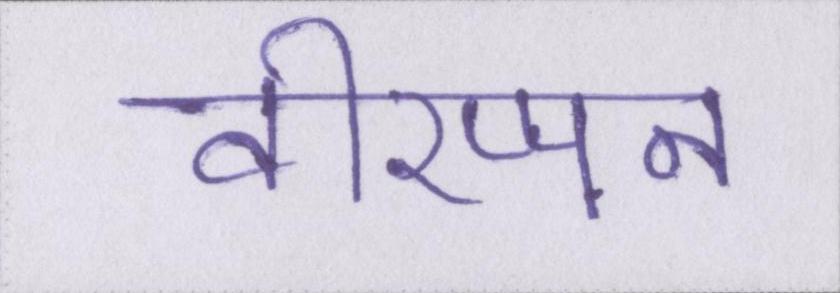 वीरप्पन